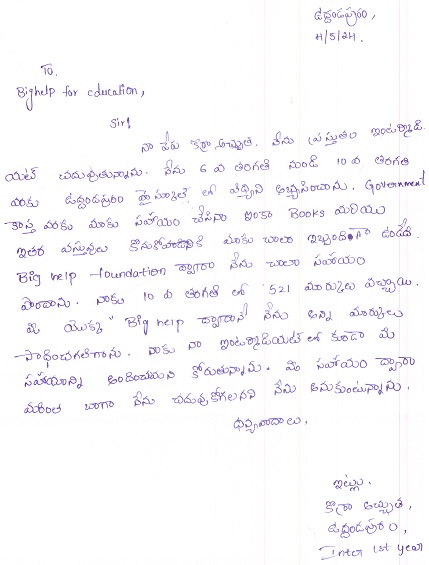 ఉద్దండపురం,
11/5/24.
To,
Bighelp for education,
Sir,
నా పేరు కొర్రా అచ్యుత. నేను ప్రస్తుతం ఇంటర్మీడి
యట్ చదువుతున్నాను. నేను 6 వ తరగతి నుండి 10 వ తరగతి
వరకు ఉద్దండపురం హై స్కూల్ లో విద్యని అభ్యసించాను. Government
కాస్త వరకు మాకు సహాయం చేసినా ఇంకా Books మరియు
ఇతర వస్తువులు కొనుకోవడానికి మాకు చాలా ఇబ్బందిగా ఉండేది.
Big help foundation ద్వారా నేను చాలా సహాయం
పొందాను. నాకు 10 వ తరగతి లో 521 మార్కులు వచ్చాయి.
మీ యొక్క "Big help ద్వారానే నేను అన్ని మార్కులు
సాధించగలిగాను. నాకు నా ఇంటర్మీడియట్ లో కూడా మీ
సహాయాన్ని అందించమని కోరుతున్నాను. మీ సహాయం ద్వారా
మరింత బాగా నేను చదువుకోగలనని నేను అనుకుంటున్నాను.
ధన్యవాదాలు.
ఇట్లు.
కొర్రా అచ్యుత,
ఉద్దండపురం,
Inter 1st year